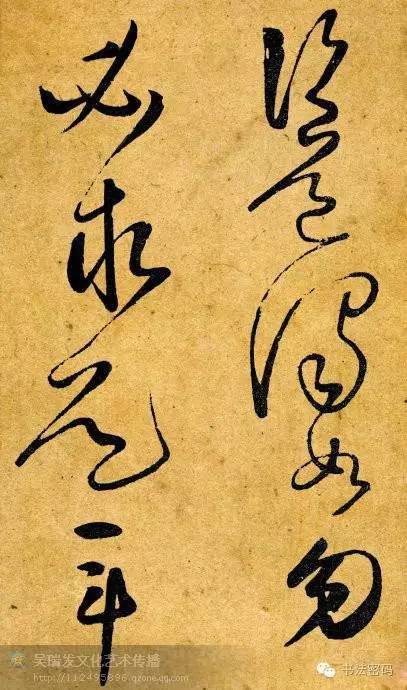 道濁如
必求一斗
吴瑞发文化艺术传播
http://112495896.qzone.qq.com
书法密码